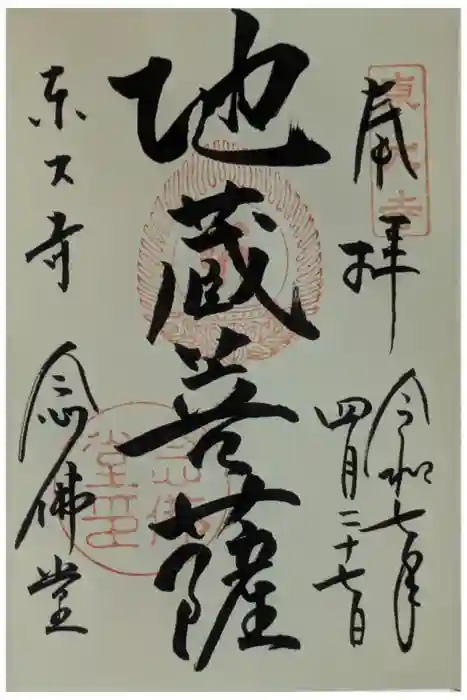 奉拝
令和七年
四月二十七日
地蔵菩薩
東大寺 念佛堂
念佛
堂印